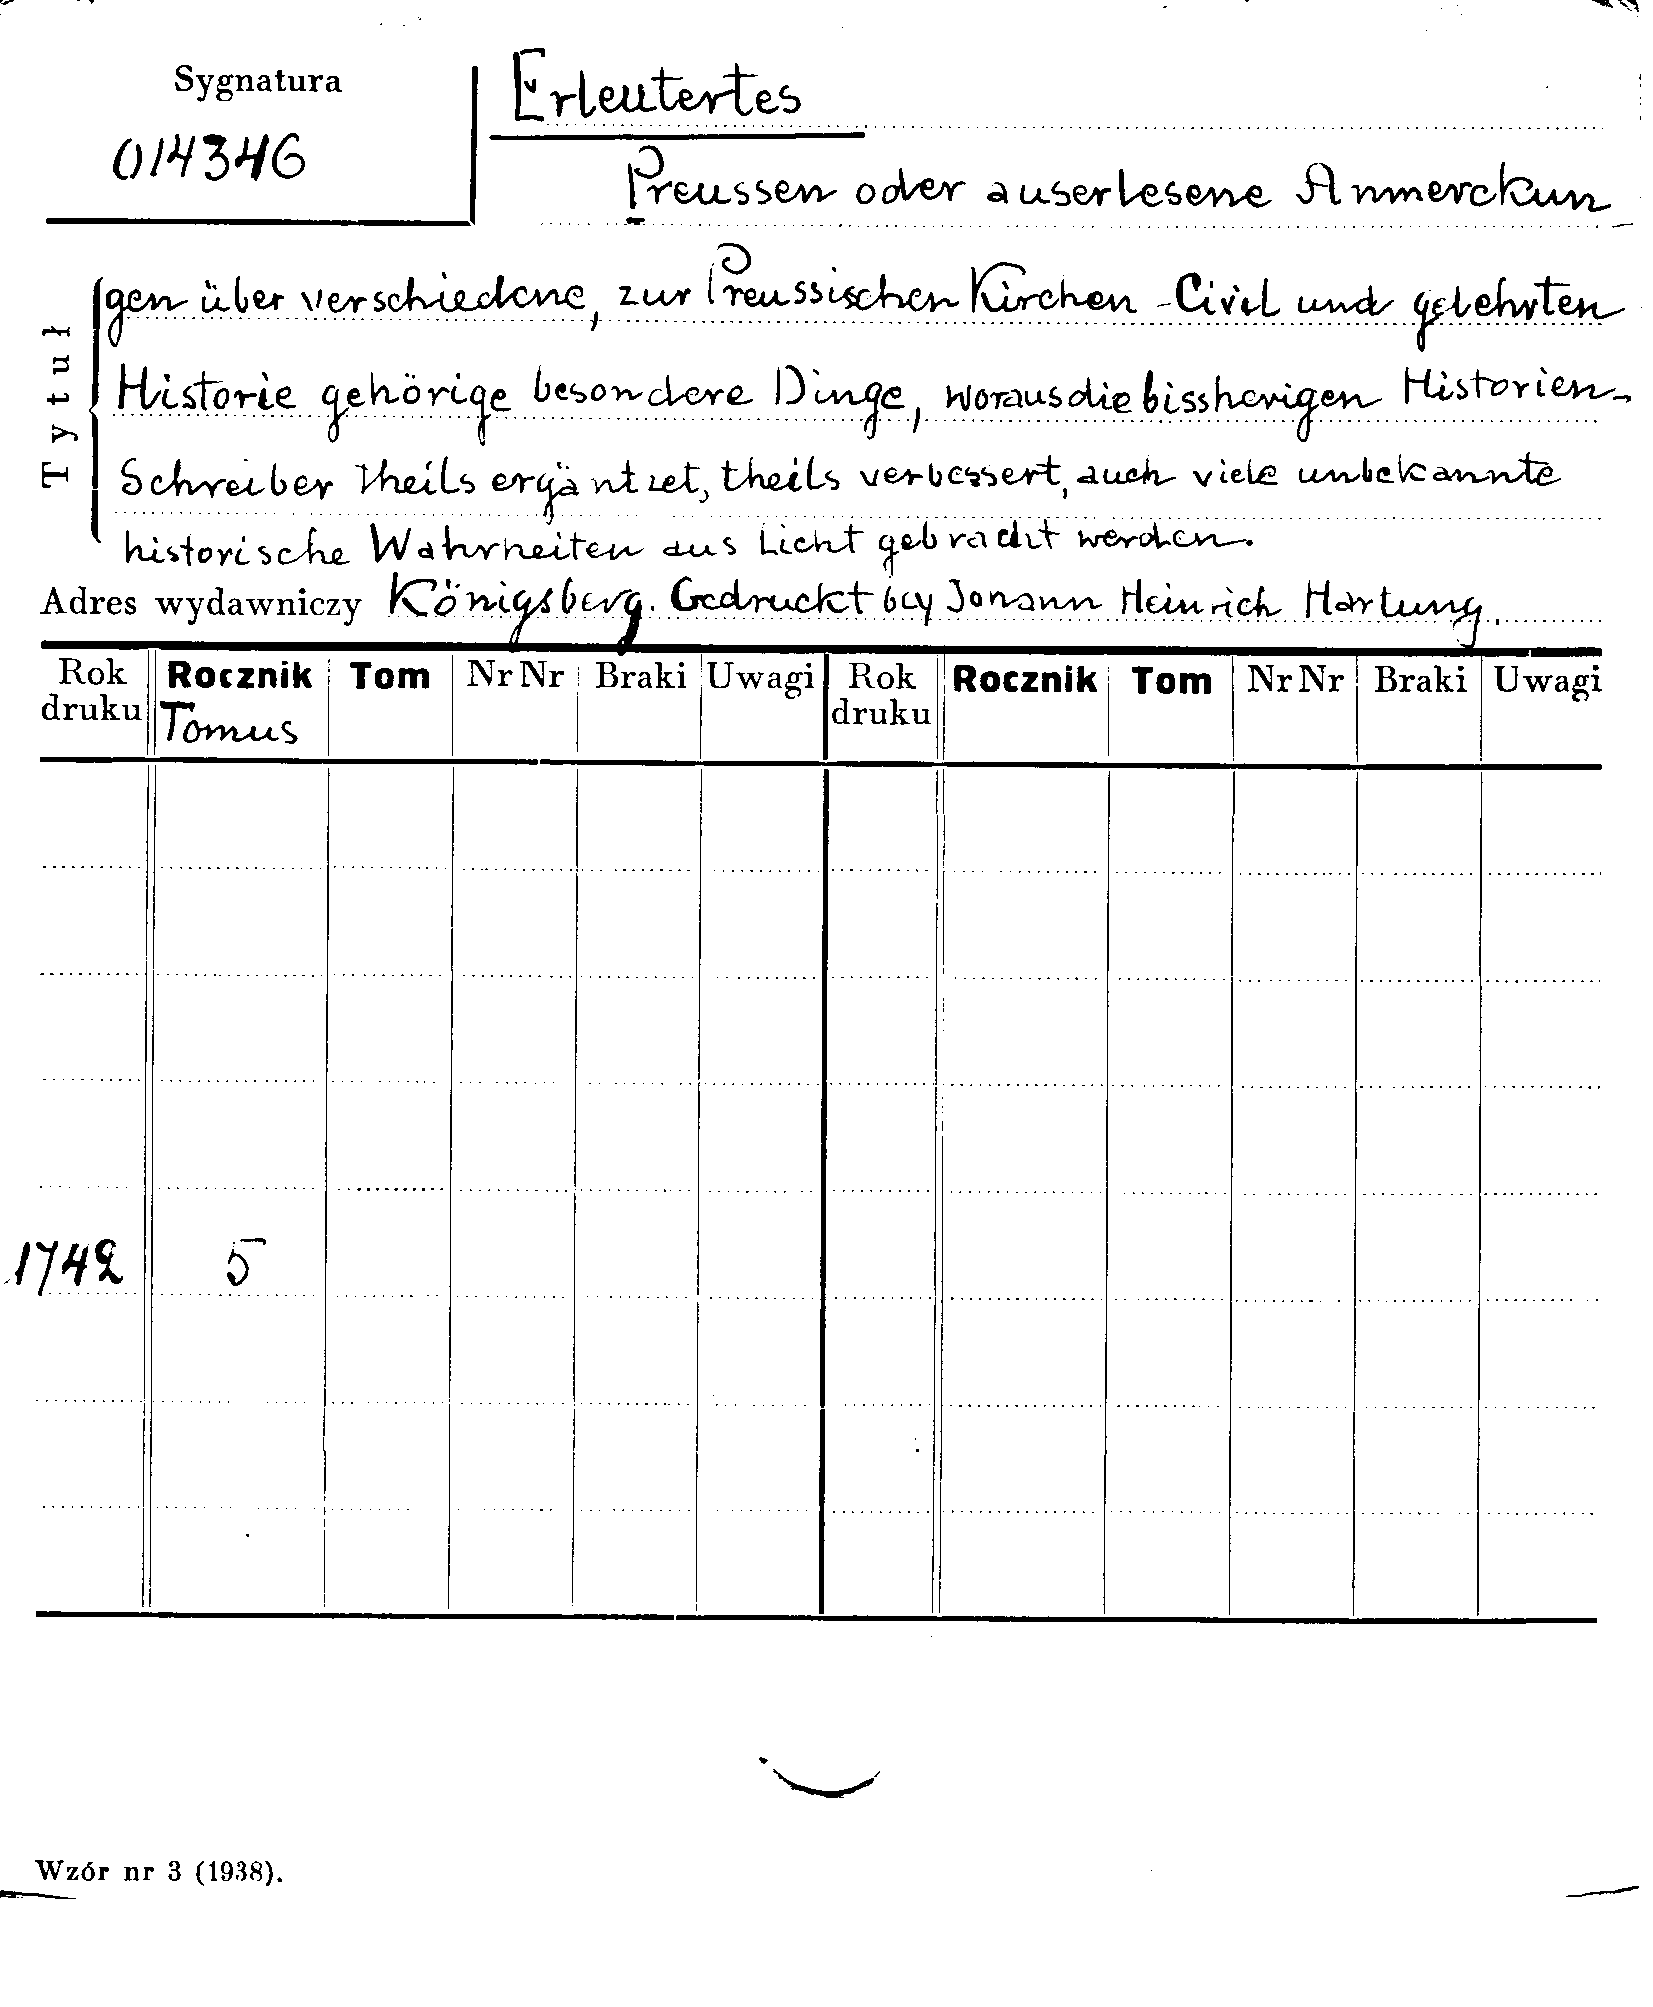 Sygnatura
014346
Erleutertes
Preussen oder auserlesene Anmerckun
Tytuł
gen über verschiedene, zur Preussischen Kirchen-Civil und gelehrten
Historie gehörige besondere Dinge, woraus die bissherigen Historien-
Schreiber theils ergäntzet, theils verbessert, auch viele unbekannte
historische Wahrheiten aus Licht gebracht werden.
Adres wydawniczy Königsberg. Gedruckt bey Johann Heinrich Hartung.
Rok druku Rocznik Tom Nr Nr Braki Uwagi Rok druku Rocznik Tom Nr Nr Braki Uwagi
Tomus
1742 5
Wzór nr 3 (1938).